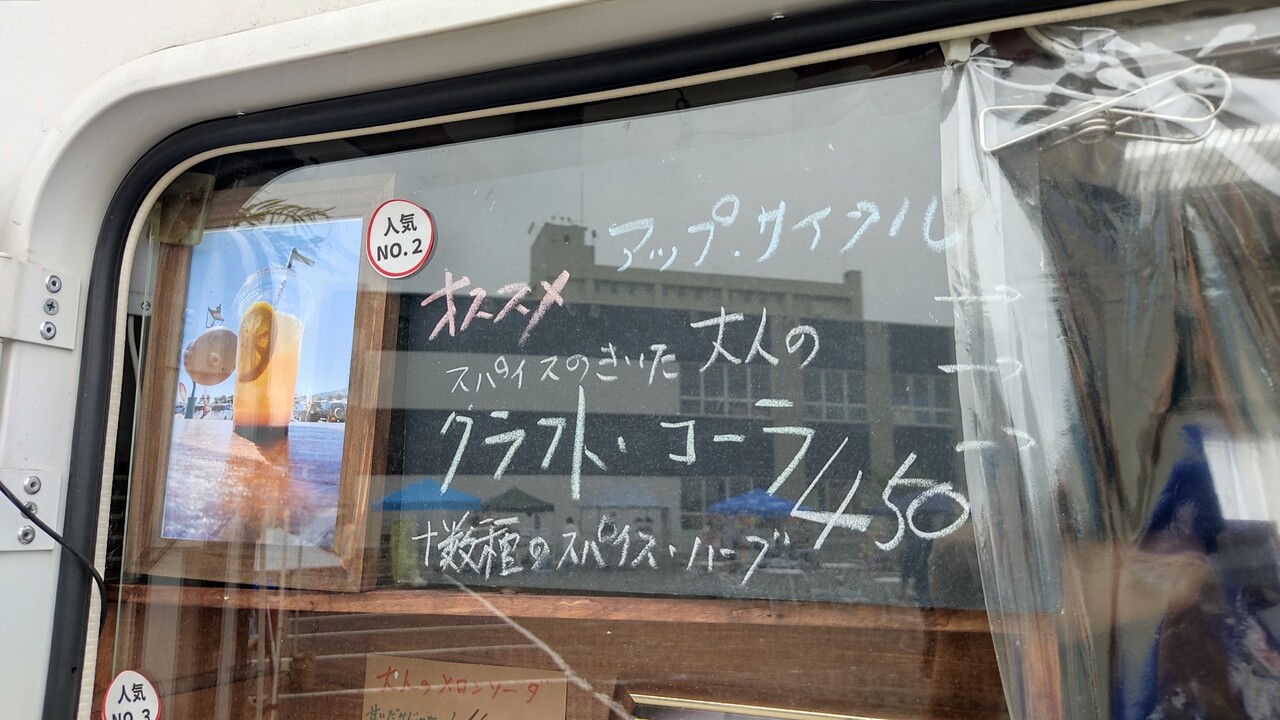 人気
NO.2
アップ・サイクル
オススメ
スパイスのきいた 大人の
クラフト・コーラ/450
十数種のスパイス・ハーブ
人気
NO.3
大人のメロンソーダ